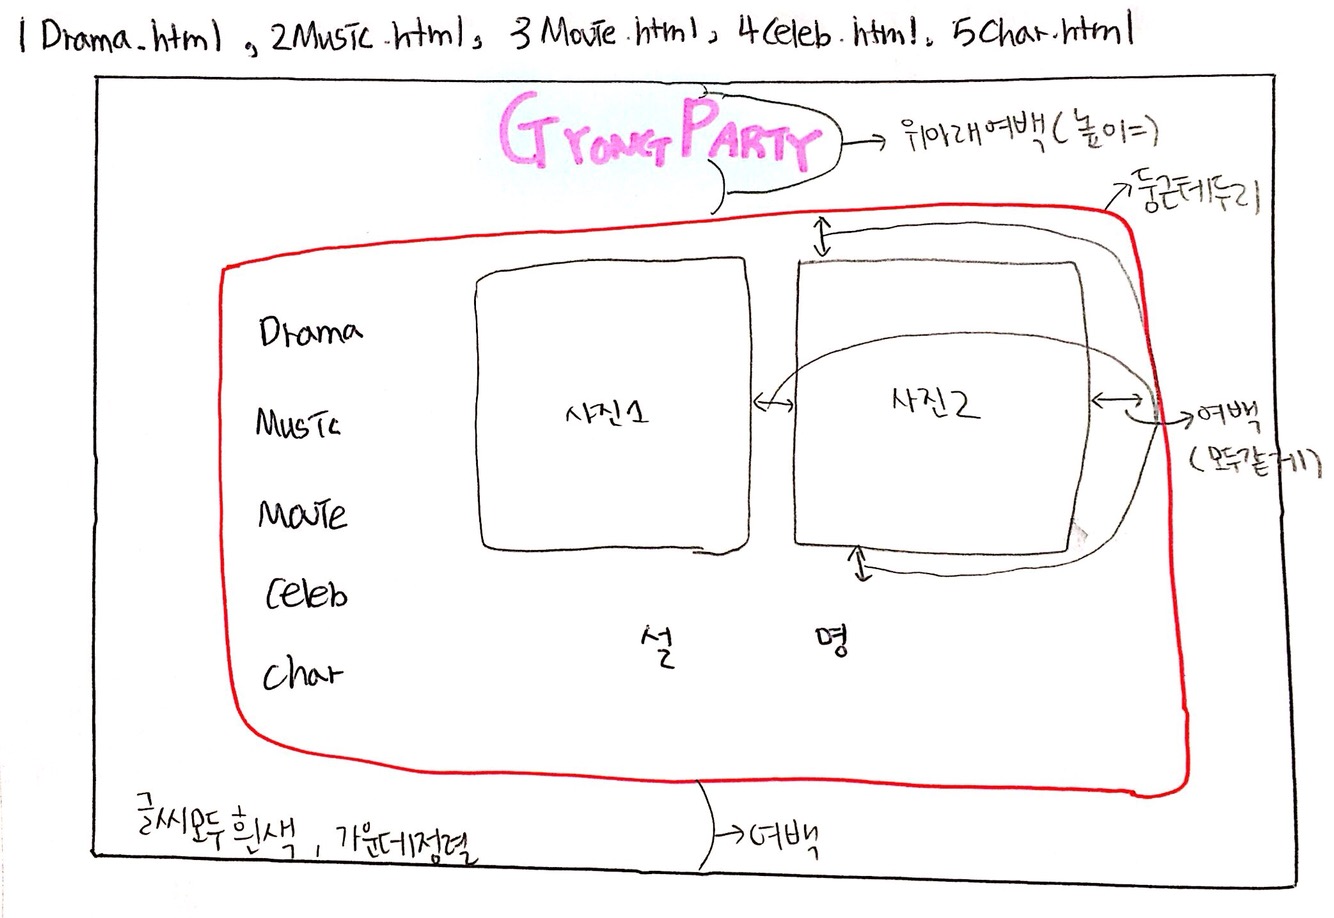 1Drama.html, 2Music.html, 3Movie.html, 4Celeb.html, 5Char.html
GYONG PARTY
위아래여백(높이=)
둥근테두리
Drama
Music
Movie
Celeb
Char
사진1
사진2
여백
(모두같게)
설 명
글씨모두흰색, 가운데정렬
여백